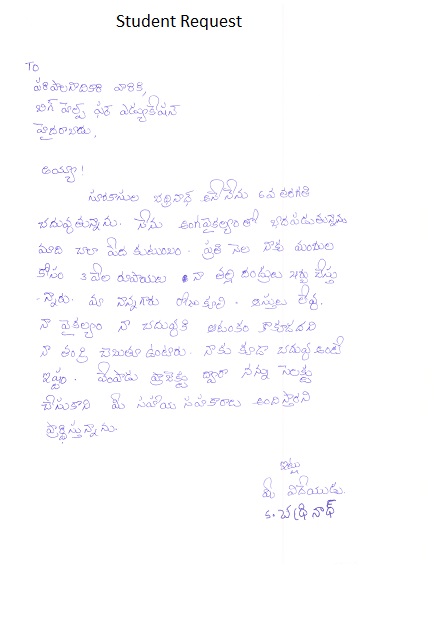 Student Request
To
పరిపాలనాధికారి వారికి,
బిగ్ హెల్ప్ ఫర్ ఎడ్యుకేషన్
హైదరాబాదు.
అయ్యా!
బద్రినాథ్ అనే నేను 6వ తరగతి
చదువుతున్నాను. నేను అంగవైకల్యం తో బాధపడుతున్నాను
మాది చాలా పేద కుటుంబం. ప్రతి నెల నాకు మందుల
కోసం 3 వేల రూపాయలు నా తల్లి దండ్రులు ఖర్చు చేస్తు
-న్నారు. మా నాన్నగారు రోజు కూలి. ఆస్తులు లేవు.
నా వైకల్యం నా చదువుకి ఆటంకం కాకూడదని
నా తండ్రి చెబుతూ ఉంటారు. నాకు కూడా చదువు అంటే
ఇష్టం. ప్రాజెక్టు ద్వారా నన్ను సెలక్టు
చేసుకొని మీ సహాయ సహకారాలు అందిస్తారని
ప్రార్థిస్తున్నాను.
ఇట్లు
మీ విదేయుడు.
బద్రినాథ్